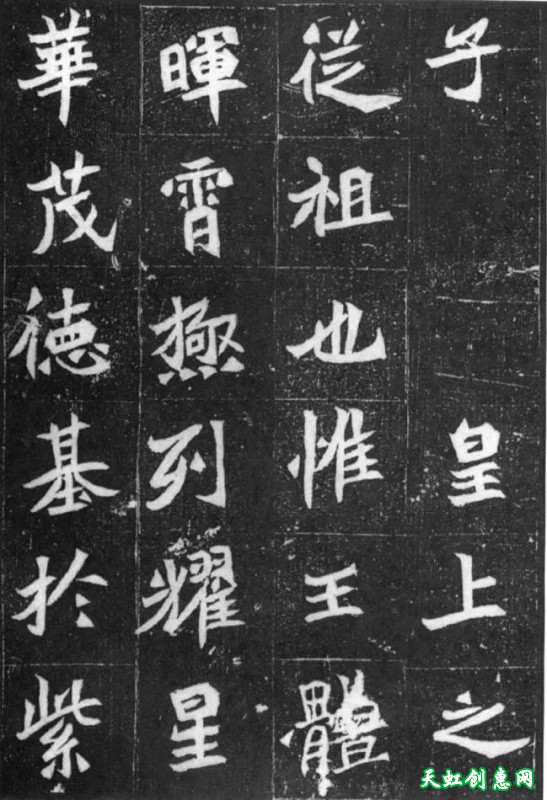 子皇上之
從祖也惟王體
暉霄極列耀星
華茂德基於紫
天虹创惠网